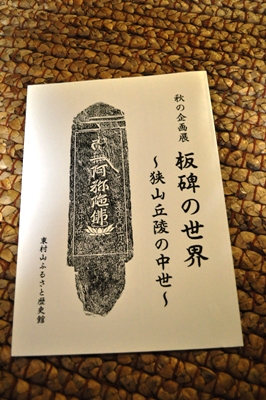 秋の企画展
板碑の世界
～狭山丘陵の中世～
南無阿弥陀佛
東村山ふるさと歴史館